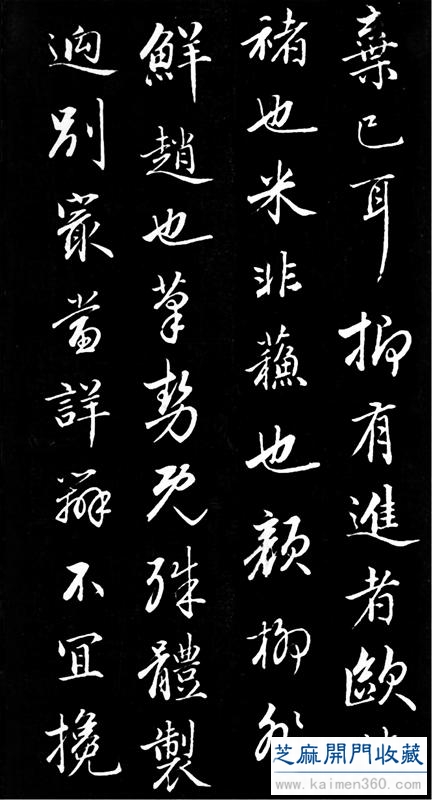 棄已耳抑有進者歐
褚也米非蘓也顏柳非
鮮趙也筆勢既殊體製
逈別最當詳辨不宜攙
芝麻開門收藏
www.kaimen360.com